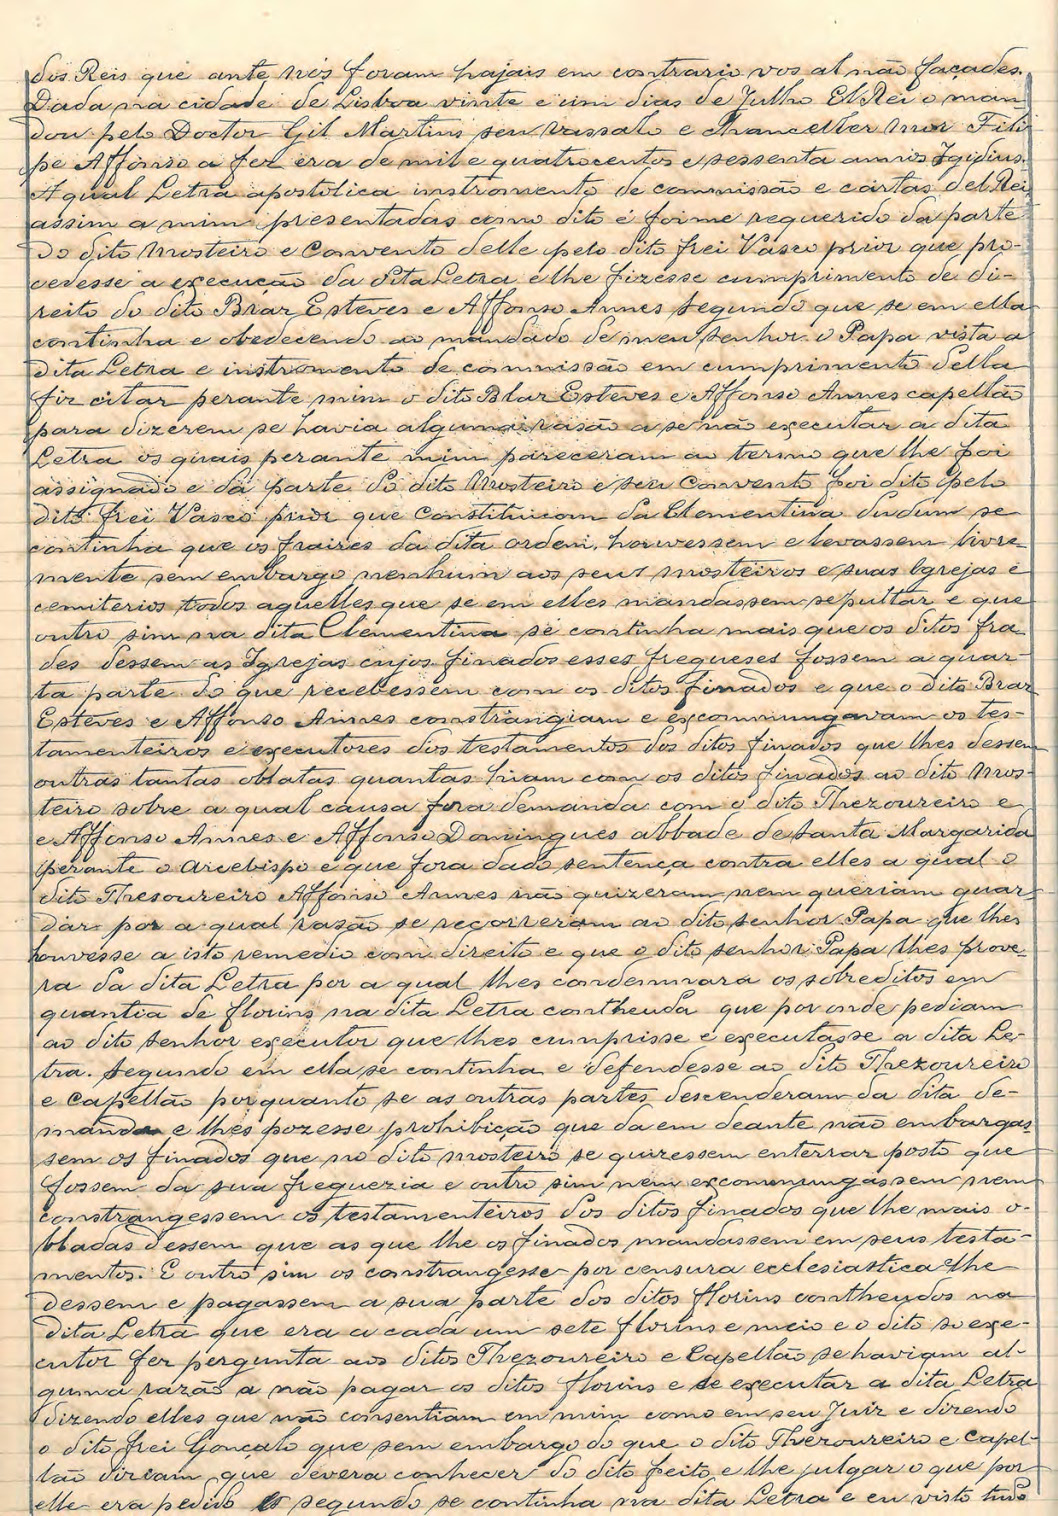 dos Reis que ante nós foram hajais em contrario vos al não façades.
Dada na cidade de Lisboa vinte e um dias de Julho El Rei o man-
dou pelo Doctor Gil Martins seu vassalo e chanceller mor Fili
pe Affonso a fez era de mil e quatrocentos e sessenta annos Igidius.
A qual Letra apostolica instromento de commissão e cartas del Rei
assim a mim presentadas como dito é foi me requerido da parte
do dito Mosteiro e Convento delle pelo dito frei Vasco prior que pro-
cedesse a execução da dita Letra e lhe fizesse cumprimento de di-
reito do dito Braz Esteves e Affonso Annes segundo que se em ella
continha e obedecendo ao mandado de meu senhor o Papa vista a
dita Letra e instromento de commissão em cumprimento della
fiz citar perante mim o dito Braz Esteves e Affonso Annes capellão
para dizerem se havia alguma rasão a se não executar a dita
Letra os quais perante mim pareceram ao termo que lhe foi
assignado e da parte do dito Mosteiro e seu Convento foi dito pelo
dito frei Vasco prior que Constituicom da Clementina dudum se
continha que os fraires da dita ordem houvessem e levassem livre
mente sem embargo nenhum aos seus mosteiros e suas Igrejas e
cemiterios todos aquelles que se em elles mandassem sepultar e que
outro sim na dita Clementina se continha mais que os ditos fra-
des dessem as Igrejas cujos finados esses fregueses fossem a quar-
ta parte do que recebessem com os ditos finados e que o dito Braz
Esteves e Affonso Annes constrangiam e excommungavam os tes-
tamenteiros e executores dos testamentos dos ditos finados que lhes dessem
outras tantas oblatas quantas hiam com os ditos finados ao dito Mos-
teiro sobre a qual causa fora demanda com o dito Thezoureiro e
e Affonso Annes e Affonso Domingues abbade de Santa Margarida
perante o arcebispo e que fora dado sentença contra elles a qual o
dito Thesoureiro Affonso Annes não quizeram nem queriam guar-
dar por a qual rasão se recorreram ao dito senhor Papa que lhes
houvesse a isto remedio com direito e que o dito senhor Papa lhes prove-
ra da dita Letra por a qual lhes condemnara os sobreditos em
quantia de florins na dita Letra contheuda que por onde pediam
ao dito senhor executor que lhes cumprisse e executasse a dita Le-
tra. Segundo em ella se continha e defendesse ao dito Thezoureiro
e capellão porquanto se as outras partes descenderam da dita de-
manda e lhes pozesse prohibição que da em deante não embargas-
sem os finados que no dito mosteiro se quizessem enterrar posto que
fossem da sua freguezia e outro sim nem excommungassem nem
constrangessem os testamenteiros dos ditos finados que lhe mais o-
bladas dessem que as que lhe os finados mandassem em seus testa-
mentos. E outro sim os constrangesse por censura ecclesiastica lhe
dessem e pagassem a sua parte dos ditos florins contheudos na
dita Letra que era a cada um sete florins e meio e o dito so exe-
cutor fez pergunta aos ditos Thezoureiro e Capellão se haviam al-
guma razão a não pagar os ditos florins e se executar a dita Letra
dizendo elles que não consentiam em mim como em seu Juiz e dizendo
o dito frei Gonçalo que sem embargo do que o dito Thezoureiro e capel-
lão diziam que devera conhecer do dito feito e lhe julgar o que por
elle era pedido segundo se continha na dita Letra e eu visto tudo